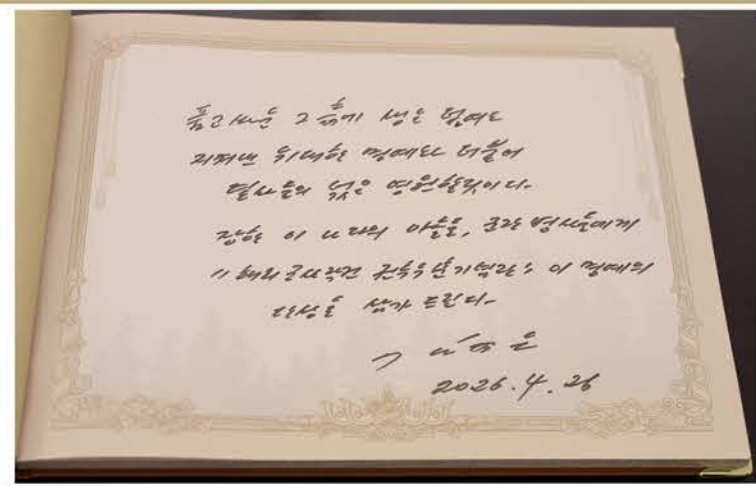 품고싸운 그 흙에 생은 덮여도
지켜낸 위대한 명예와 더불어
렬사들의 넋은 영원할것이다.
장한 이 나라의 아들들, 조선 병사들에게
《해외군사작전 전투위훈기념관》 이 명예의
단상을 삼가 드린다.
김정은
2026.4.26